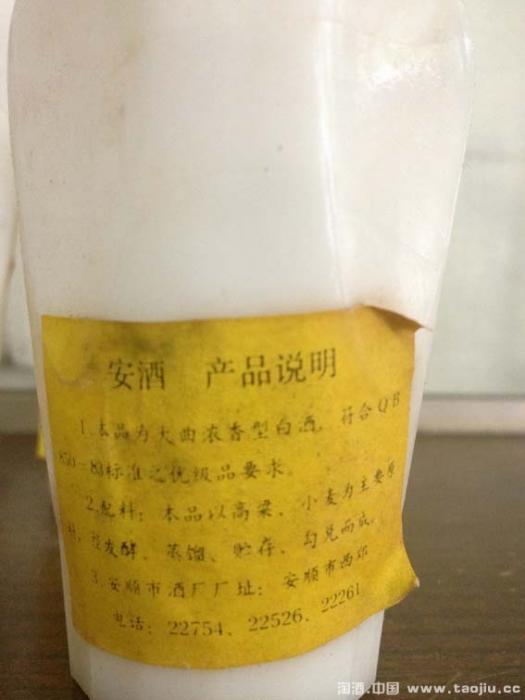 安酒 产品说明
1.本品为大曲浓香型白酒，符合QB
850-83标准之优级品要求。
2.配料：本品以高粱、小麦为主要原
料，经发酵、蒸馏、贮存、勾兑而成。
3.安顺市酒厂厂址：安顺市西郊
电话：22754、22526、22261
淘酒.中国 www.taojiu.com